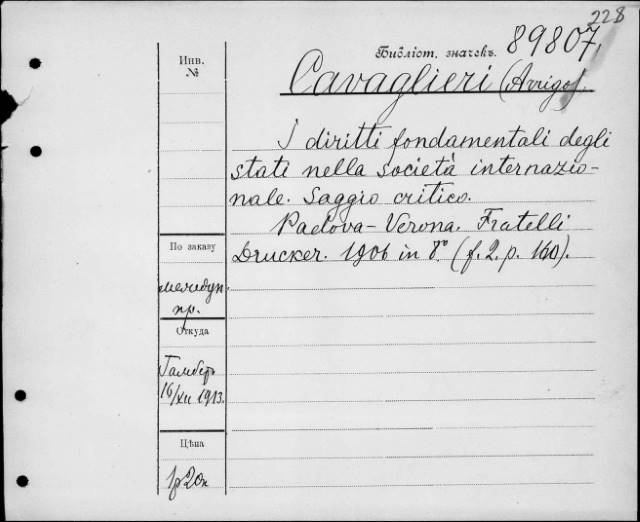 228
Инв.
№
Библіот. значекъ. 89807.
Cavaglieri (Arrigo).
I diritti fondamentali degli
stati nella società internazio-
nale. Saggio critico.
Padova-Verona. Fratelli
Drucker. 1906 in 8º (f. 2. p. 160).
По заказу
международн.
пр.
Откуда
16/XII 1913.
Цѣна
1р20к